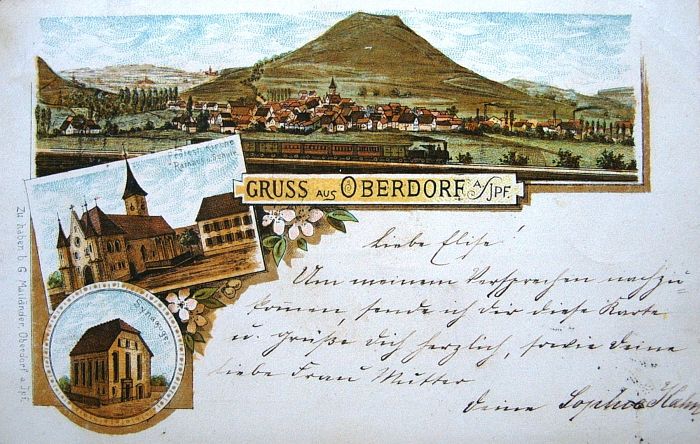 Kirche
Pfarrhaus u. Schule
GRUSS AUS OBERDORF A/IPF
Synagoge
Zu haben b. G. Mailänder, Oberdorf a. Ipf.
Liebe Elise!
Um meinem Versprechen nachzu-
kommen, sende ich dir diese Karte
u. grüße dich herzlich, sowie deine
liebe Frau Mutter
deine Sophie Hahn